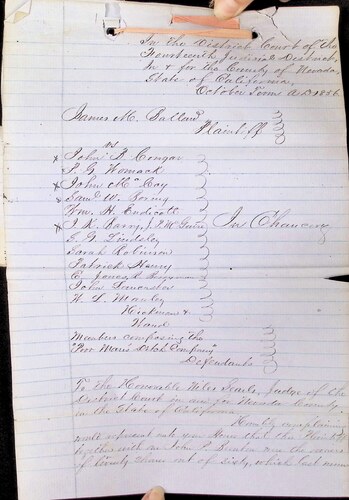 In the District Court of the
Fourteenth Judicial District,
In & for the County of Nevada,
State of California,
October Term A.D. 1856
James M. Ballard
Plaintiff
vs
John B. Congar
P. G. Womack
John McCoy
Saml W. Boring
Wm. H. Endicott
J. R. McGuire
In Chancery
J. G. Lindsley
Sarah Robinson
Patrick Henry
E. Jones
John Lancaster
W. S. Manley
Hickman &
Hand
Members composing the
"Poor Man's Ditch Company"
Defendants
To the Honorable Niles Searls, Judge of the
District Court in and for Nevada County,
in the State of California
Humbly complaining
would represent unto your Honor that the Plaintiff
together with an John P. are the owners
of Ninety Shares out of Sixty, which last